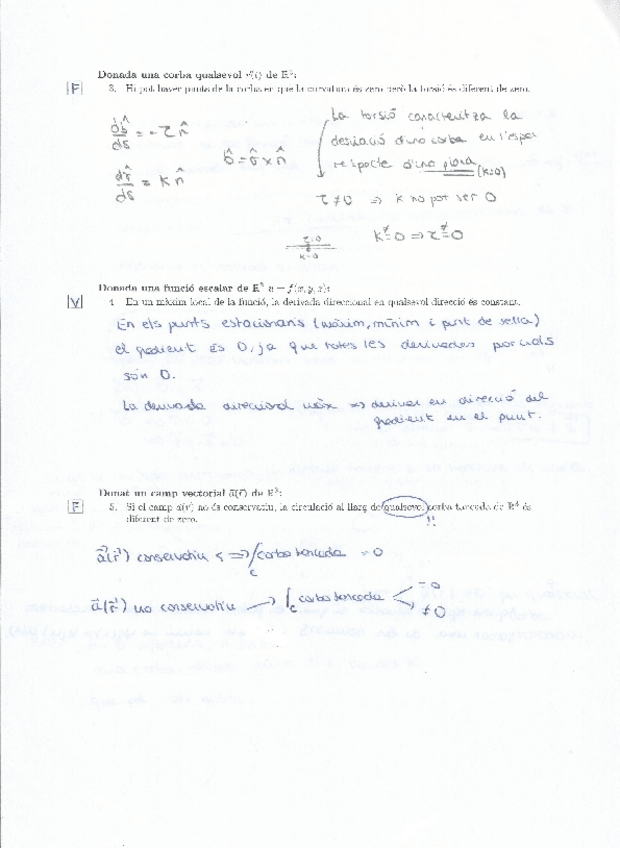 Donada una corba qualsevol r(t) de R³:
F 3. Hi pot haver punts de la corba en que la curvatura és zero però la torsió és diferent de zero.
db̂/ds = -τ n̂
b̂ = σ̂ × n̂
dσ̂/ds = K n̂
La torsió caracteritza la
desviació d'una corba en l'espai
respecte d'una plana
(k=0)
τ ≠ 0 ⇒ k no pot ser 0
τ=0
k=0
K ≠ 0 ⇒ τ ≠ 0
Donada una funció escalar de R³ u = f(x, y, z):
V 4. En un màxim local de la funció, la derivada direccional en qualsevol direcció és constant.
En els punts estacionaris (màxim, mínim i punt de sella)
el gradient és 0, ja que totes les derivades parcials
són 0.
La derivada direccional màx => derivar en direcció del
gradient en el punt.
Donat un camp vectorial a(r) de R³:
F 5. Si el camp a(r) no és conservatiu, la circulació al llarg de qualsevol corba tancada de R³ és
diferent de zero.
!!
a(r) conservatiu <=> ∫c corba tancada = 0
a(r) no conservatiu → ∫c corba tancada = 0
≠ 0